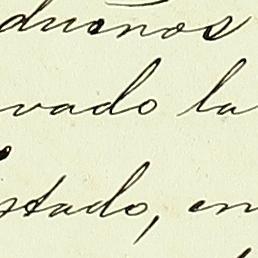 dueños
vado la
stado, en